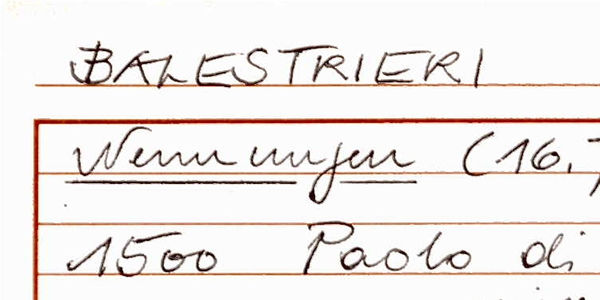 BALESTRIERI
Nennungen (16.)
1500 Paolo di